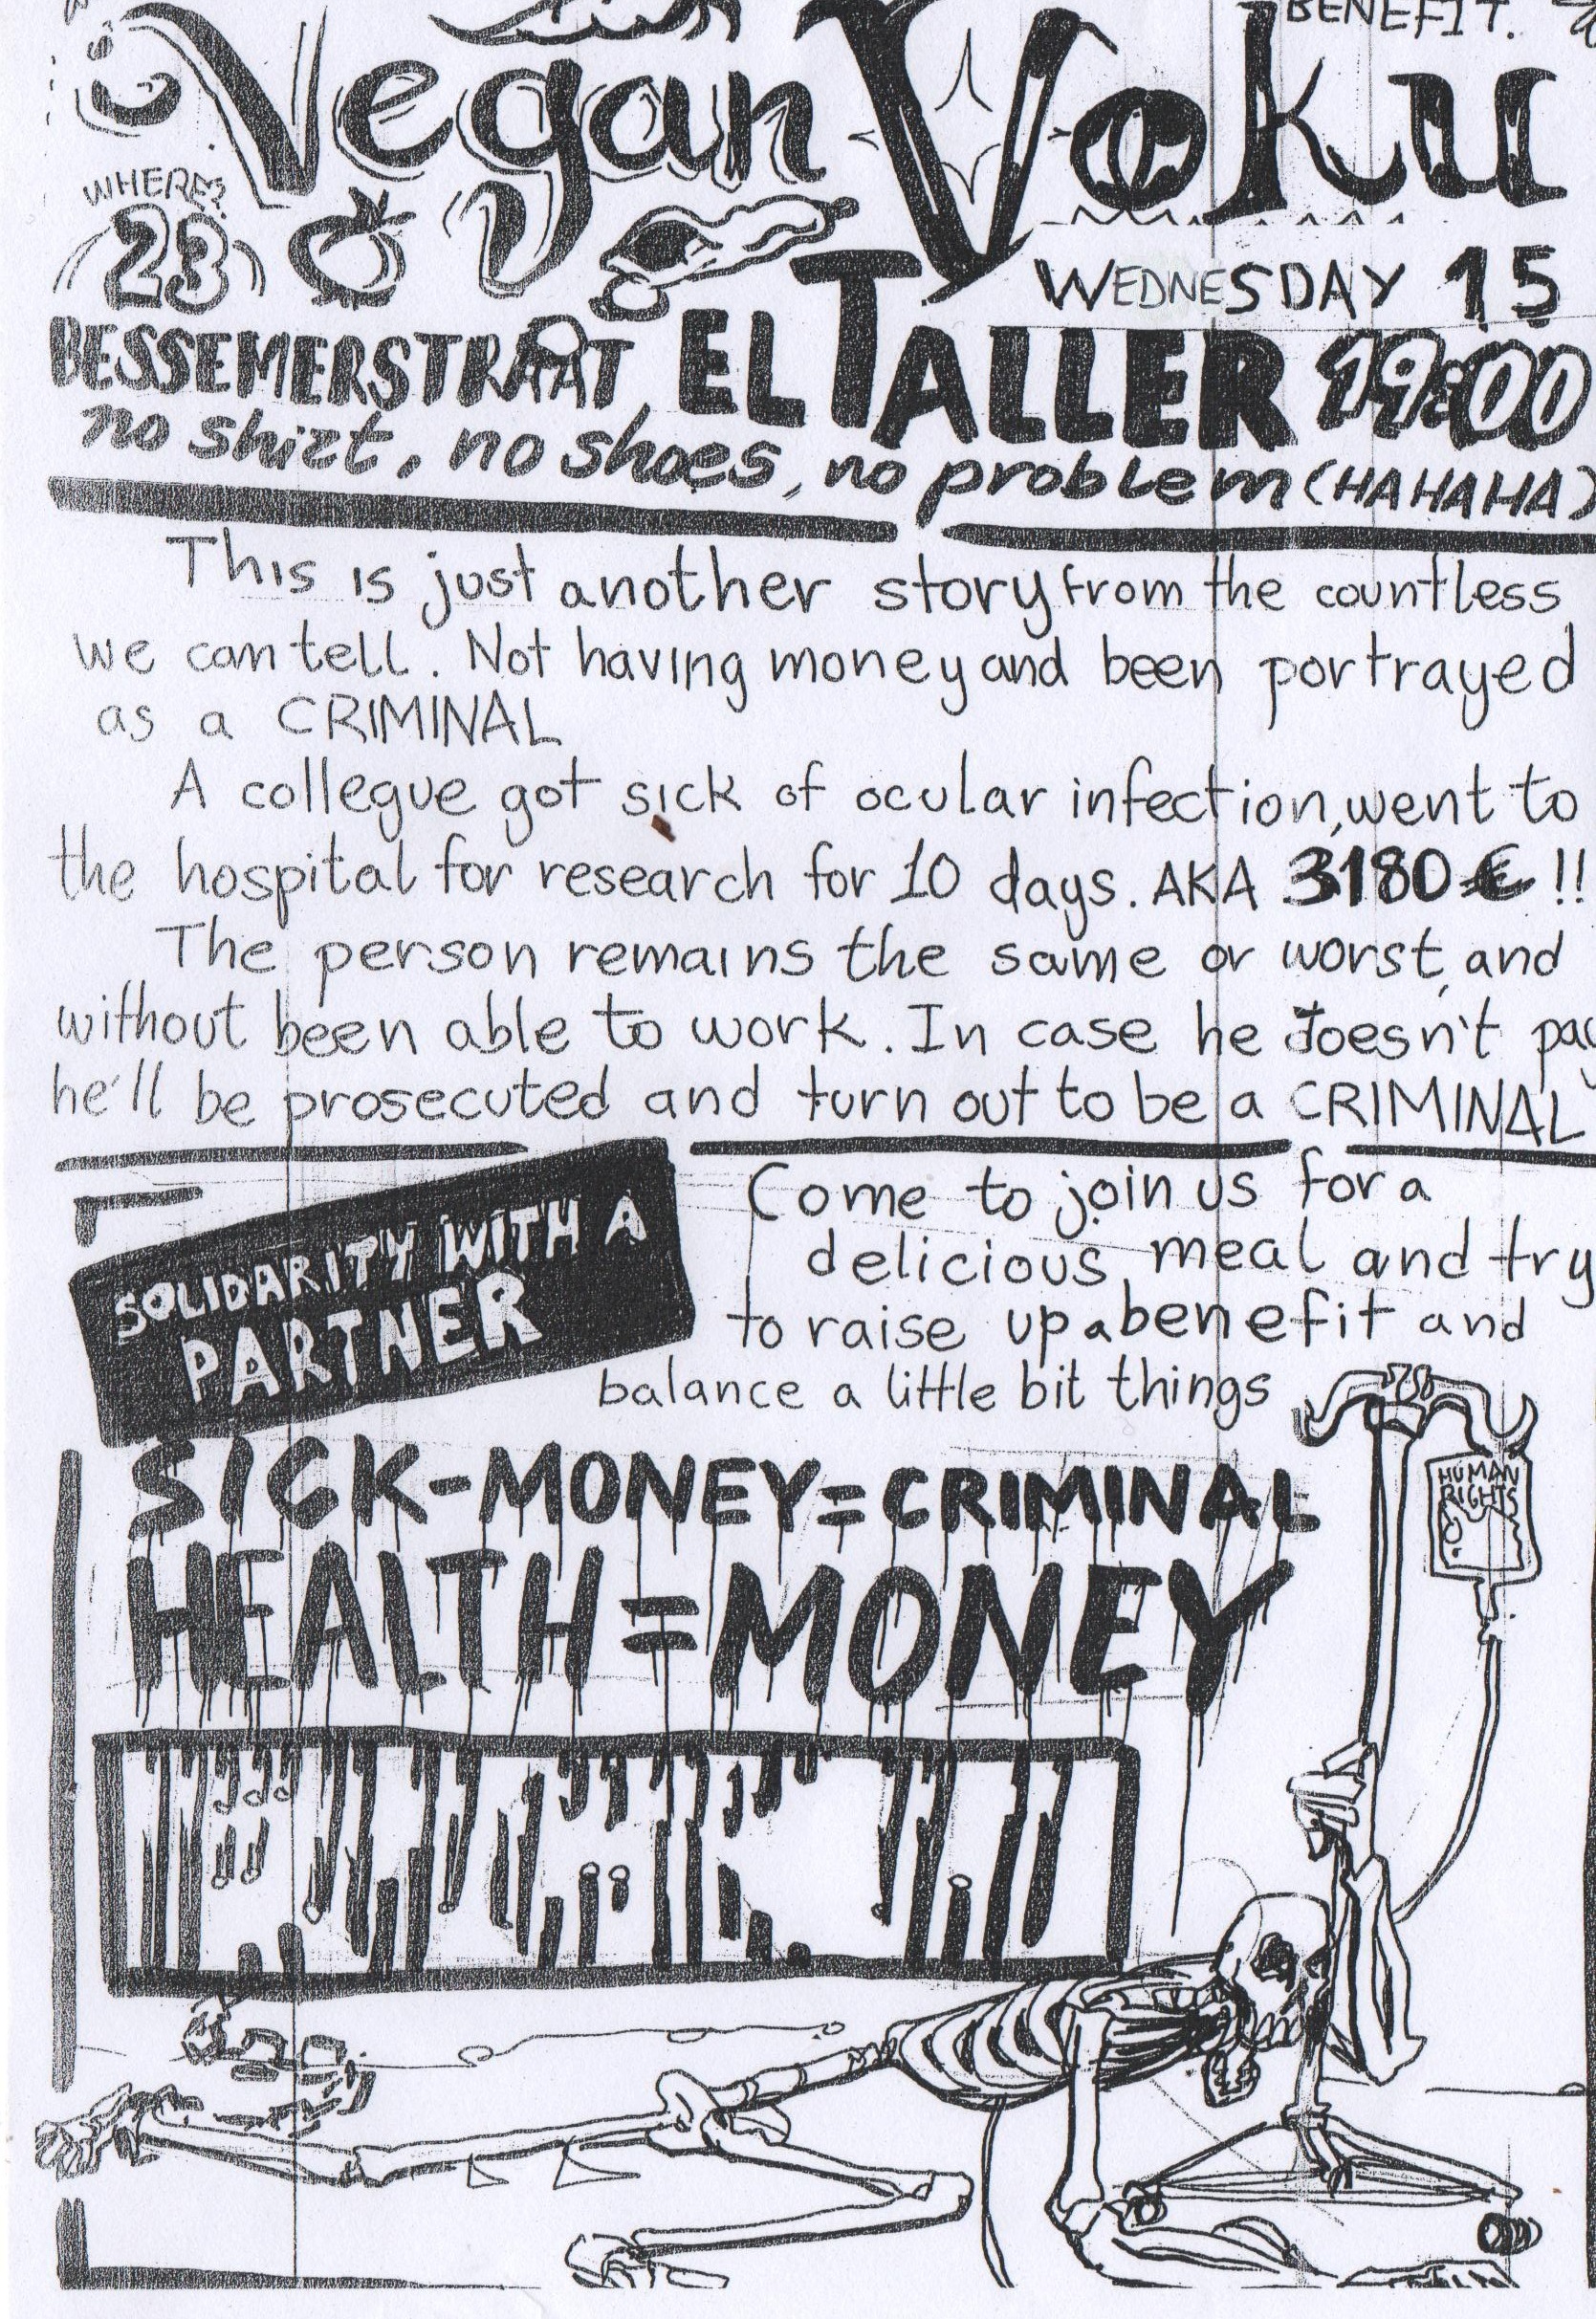 BENEFIT.
Vegan Voku
WHERE?
23
BESSEMERSTRAAT, EL TALLER
WEDNESDAY 15
19:00
no shirt, no shoes, no problem (HAHAHA)
This is just another story from the countless
we can tell. Not having money and been portrayed
as a CRIMINAL
A collegue got sick of ocular infection, went to
the hospital for research for 10 days. AKA 3180 € !!
The person remains the same or worst, and
without been able to work. In case he doesn't pay
he'll be prosecuted and turn out to be a CRIMINAL
SOLIDARITY WITH A
PARTNER
Come to join us for a
delicious meal and try
to raise up a benefit and
balance a little bit things
SICK-MONEY=CRIMINAL
HEALTH=MONEY
HUMAN
RIGHTS